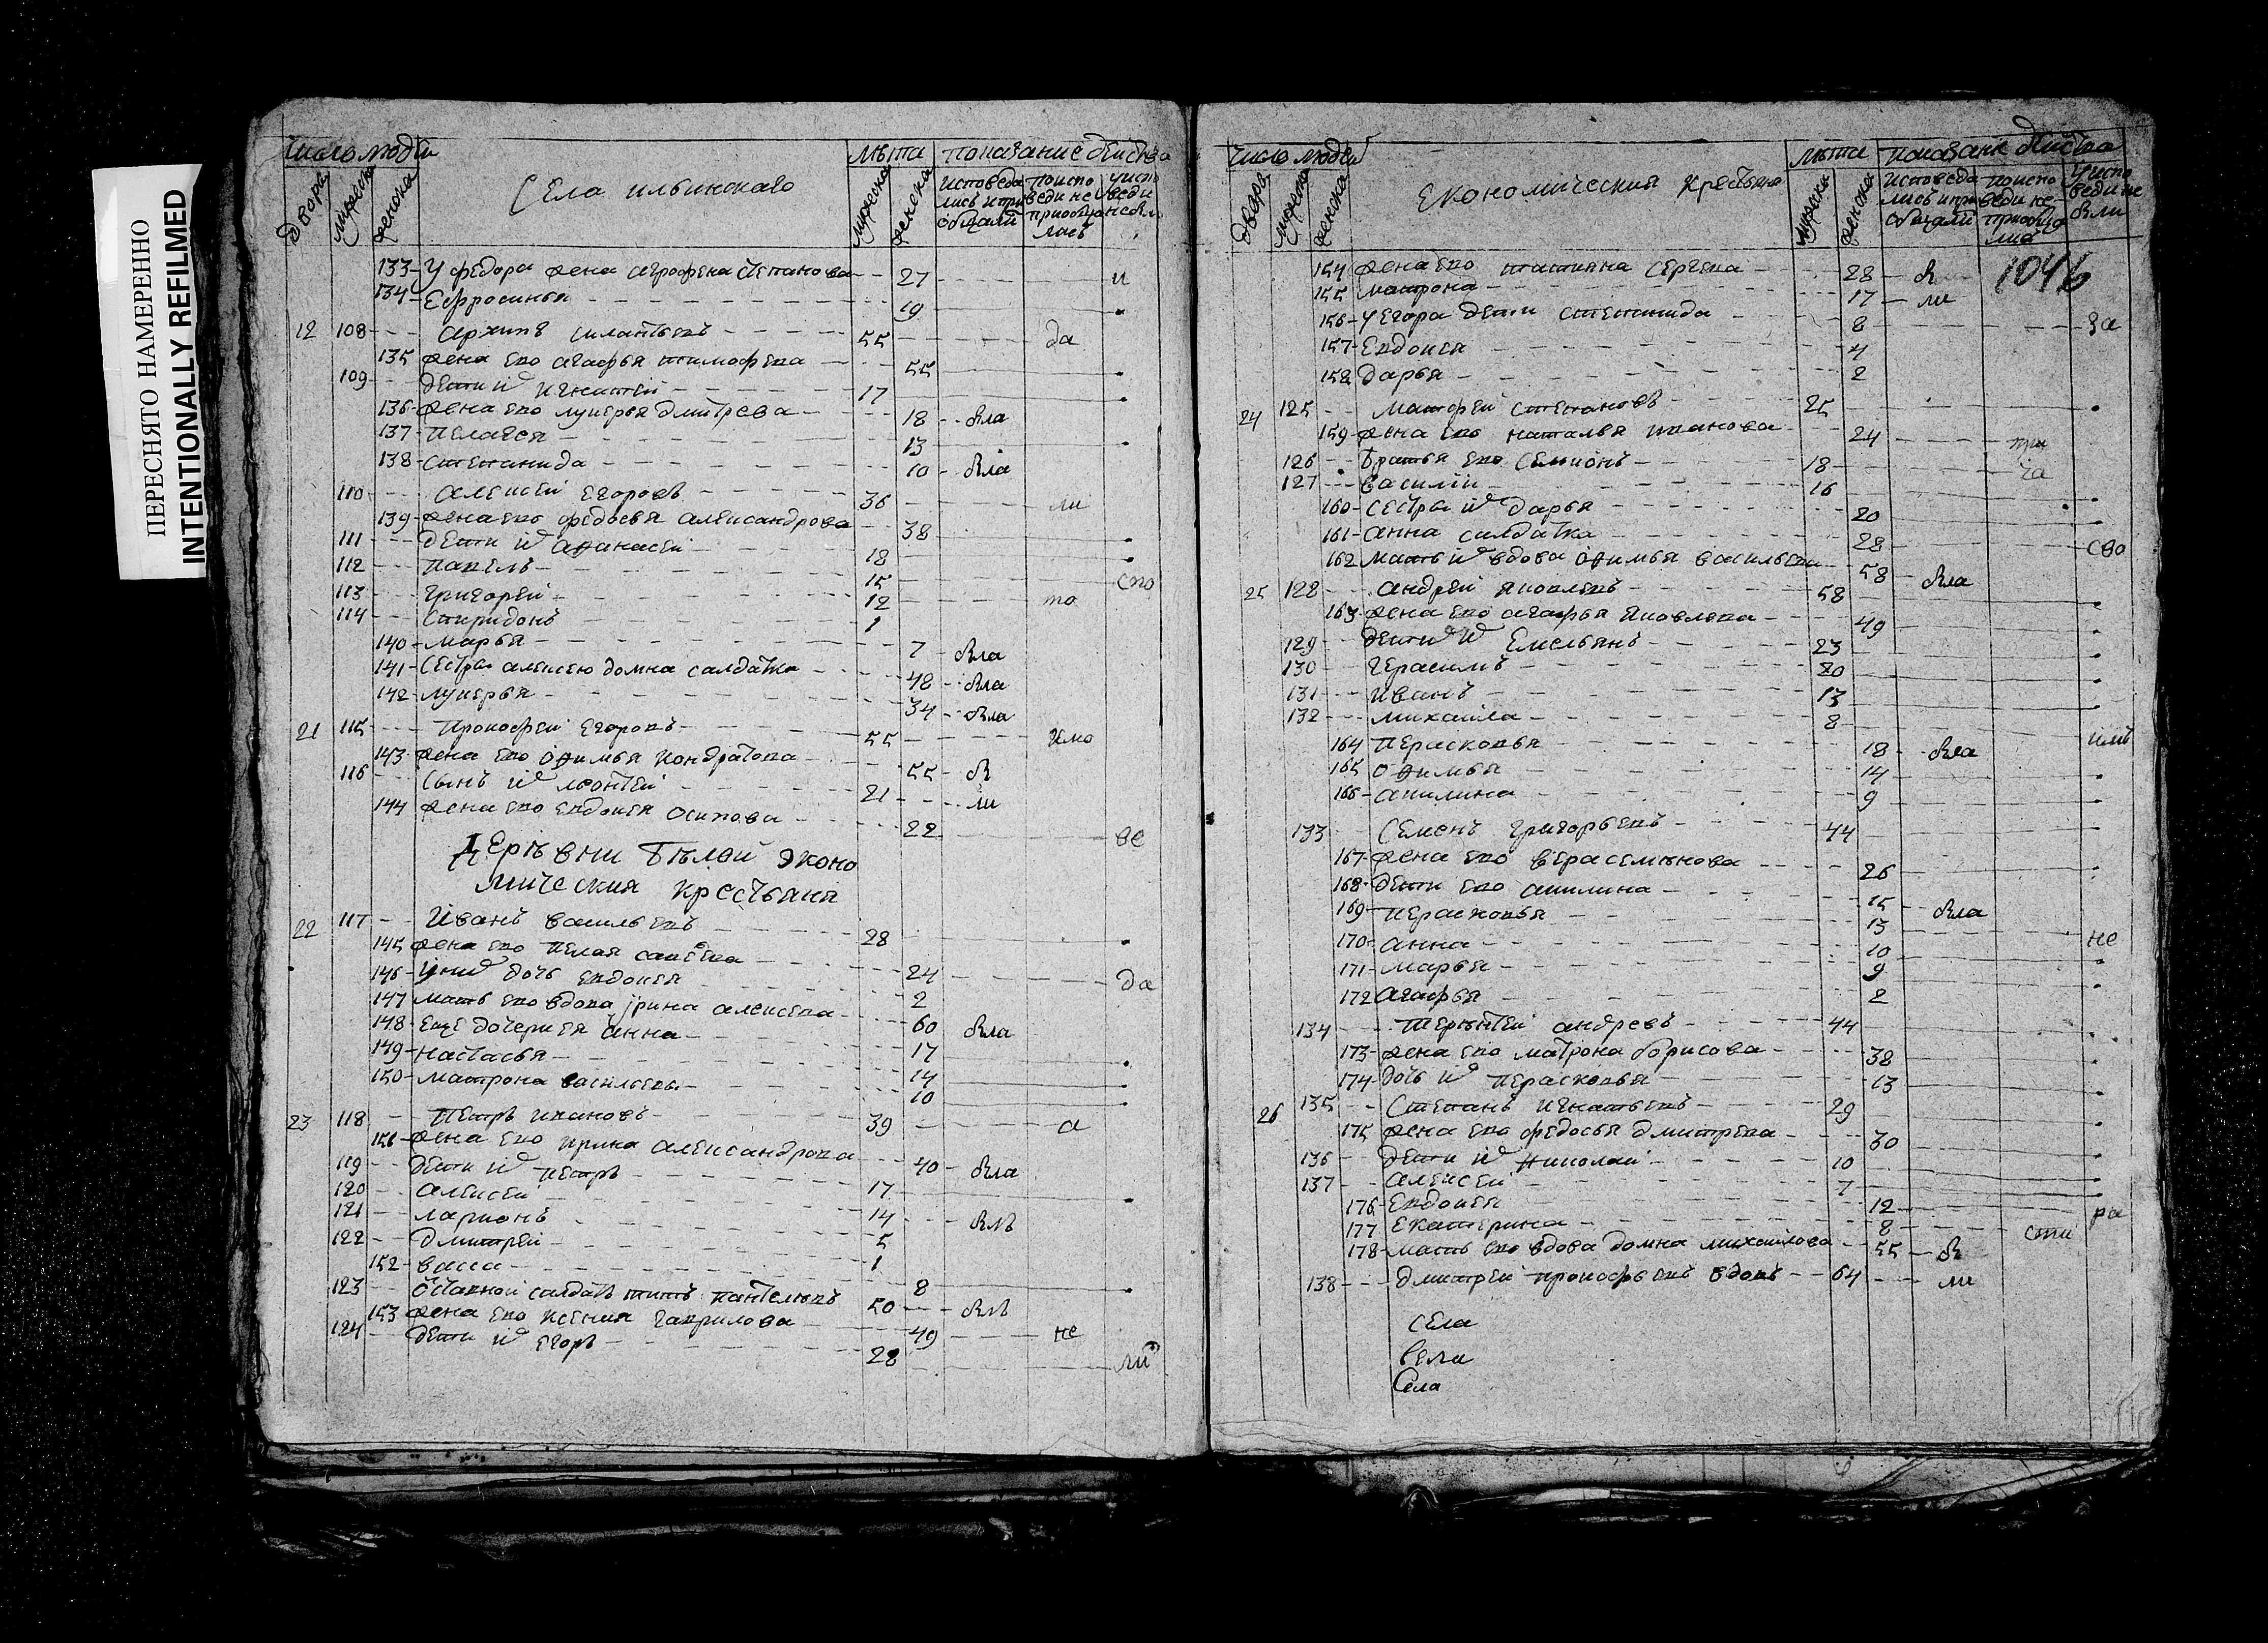 ПЕРЕСНЯТО НАМЕРЕННО
INTENTIONALLY REFILMED
Число людей
Села ильинскаго
лѣта показание действа
двора мужеска женска
мужеска женска
133 У федора жена аграфена степанова 27 и
134 Ефросинья 19
12 108 архипъ силантьевъ 55 да
135 жена ево агафья тимофева 55
109 дети ихъ игнатей 17
136 жена ево лукерья дмитрева 18 вла
137 пелагея 13
138 степанида 10 вла
110 алексей егоровъ 36 ли
139 жена ево федосья александрова 38
111 дети ихъ афанасей 18
112 павелъ 15 сто
113 григорей 12 то
114 спиридонъ 1
140 марья 7 вла
141 сестры алексею домна салдатка 48 вла
142 лукерья 34 вла
21 115 прокофей егоровъ 55 имо
143 жена ево офимья кондратова 55 в
116 сынъ ихъ леонтей 21 ли
144 жена ево евдокея осипова 22 ве
Деревни Белой эконо
мическия крестьяня
22 117 Иванъ васильевъ 28
145 жена ево пелая савева 24 да
146 у нихъ дочь евдокея 2
147 мать ево вдова ірина алексева 60 вла
148 еще дочерися анна 17
149 настасья 14
150 матрона васильевы 10
23 118 Петръ ивановъ 39 а
151 жена ево ирина александрова 40 вла
119 дети ихъ петръ 17
120 алексей 14 влъ
121 ларионъ 5
122 дмитрей 1
152 васса 8
123 отставной салдатъ титъ пантелеевъ 50 влъ
153 жена ево ксения гаврилова 49 не
124 дети ихъ егоръ 28 ли
Число людей
Економическия крестьяня
лѣта показание действа
двора мужеска женска
мужеска женска
1046
154 жена ево татияна сергева 28 в
155 матрона 17 ли
156 у егора дети степанида 8 за
157 Евдокея 4
158 дарья 2
24 125 матфей степановъ 25
159 жена ево наталья иванова 24 при
126 братья ево семионъ 18 ча
127 василии 16
160 сестры ихъ дарья 20
161 анна салдатка 28 сво
162 мать ихъ вдова офимья васильева 58 вла
25 128 андрей яковлевъ 58
163 жена ево агафья яковлева 49
129 дети ихъ Емельянъ 23
130 герасимъ 20
131 иванъ 13
132 михайла 8 имъ
164 перасковья 18 вла
165 офимья 14
166 акилина 9
133 Семенъ григорьевъ 44
167 жена ево вера семионова 26
168 дети ево акилина 15 вла
169 перасковья 13
170 анна 10 не
171 марья 9
172 агафья 2
134 терентей андревъ 44
173 жена ево матрона борисова 38
174 дочь ихъ перасковья 13
26 135 Степанъ игнатьевъ 29
175 жена ево федосья дмитрева 30
136 дети ихъ николай 10
137 алексей 7
176 Евдокея 12 ра
177 Екатерина 8 сти
178 мать ево вдова домна михайлова 55 в
138 дмитрей прокофьевъ вдовъ 64 ли
села
села